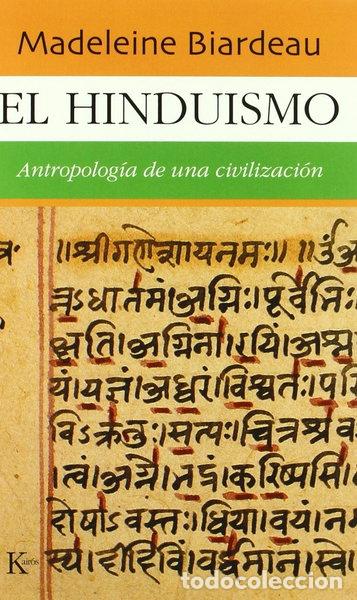 Madeleine Biardeau
EL HINDUISMO
Antropología de una civilización
॥श्रीगणेशायनमः॥
त्नऽधातमं।अग्निः।पूर्वेभिः
अग्निना।रयिं।अश्न
यं।यज्ञं।अध्वरं।विश्वतः।परि
विऽक्रतुः।सत्यः।चित्रश्रव
।त्वं।अग्ने।भद्रं।करिष्यसि
दोषाऽवस्तः।धिया।वयं।
स्य।दीदिविं।वर्धमानं।स्वे
Kairós
todocoleccion